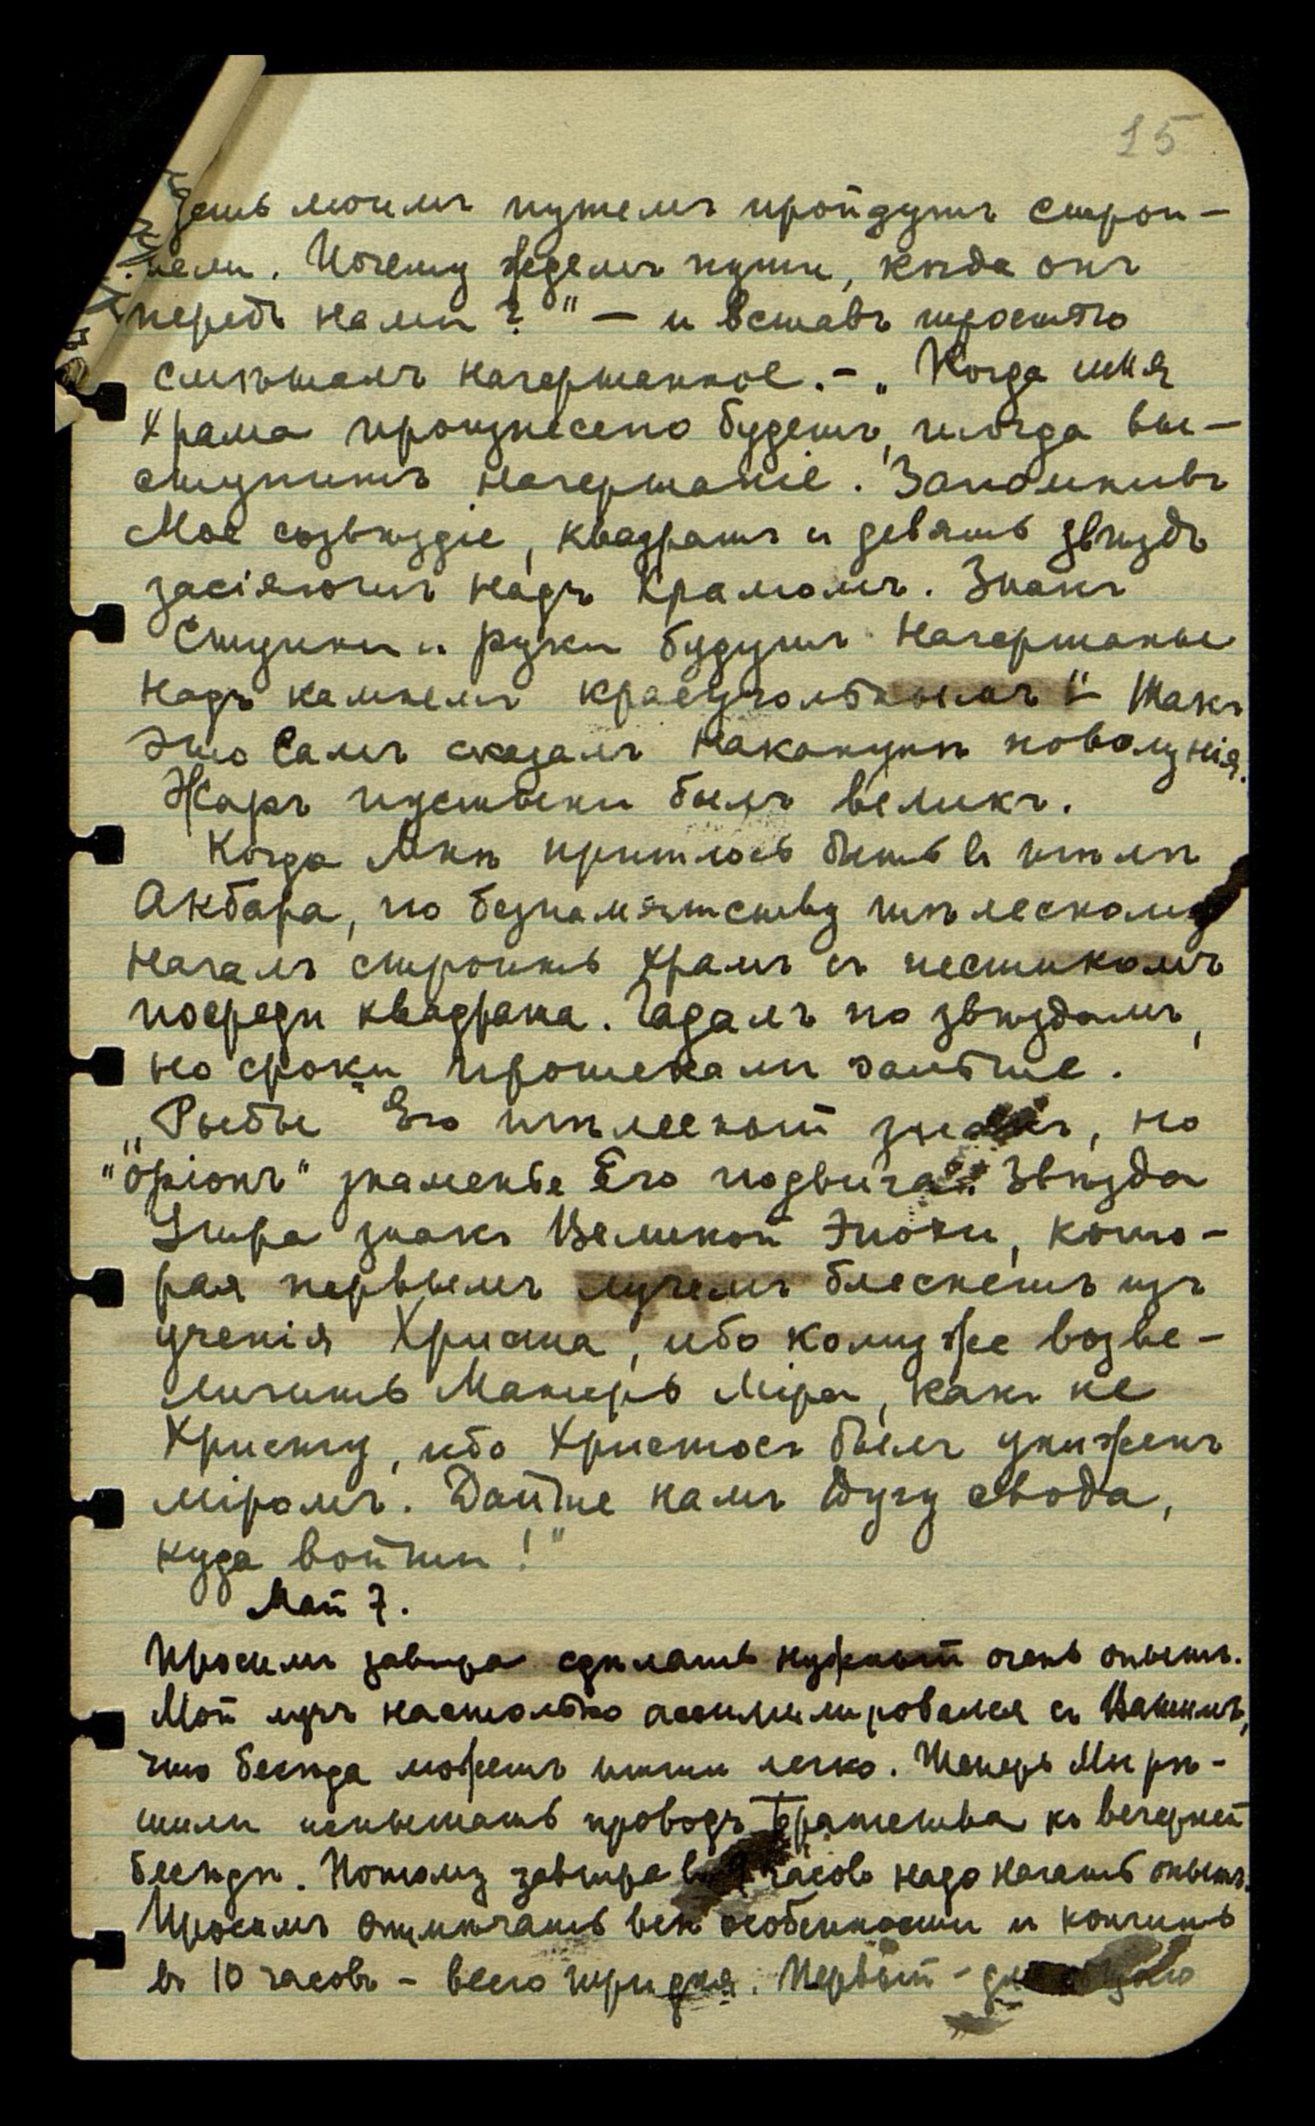 15
моимъ путемъ пройдутъ строи-
тели. Почему ждемъ пути, когда онъ
передъ нами?" – и вставъ тростью
смѣшалъ начертанное. – „Когда имя
Храма произнесено будетъ, тогда вы-
ступитъ начертаніе. Запомнивъ
Мое созвѣздіе, квадратъ и девять звѣздъ
засіяютъ надъ Храмомъ. Знакъ
Ступни и руки будутъ начертаны
надъ камнемъ краеугольнымъ" – Такъ
это Самъ сказалъ наканунѣ новолунія.
Жаръ пустыни былъ великъ.
Когда Мнѣ пришлось быть въ тѣлѣ
Акбара, по безпамятству тѣлесному
началъ строить храмъ съ пестикомъ
посреди квадрата. Гадалъ по звѣздамъ,
но сроки протекали дальше.
„Рыбы" Его тѣлесный знакъ, но
"Оріонъ" знаменье Его подвига. Звѣзда
Утра знакъ Великой Эпохи, кото-
рая первымъ лучемъ блеснетъ изъ
ученія Христа, ибо кому же возве-
личить Матерь Міра, какъ не
Христу, ибо Христосъ былъ униженъ
міромъ. Дайте намъ Дугу свода,
куда войти!"
Май 7.
Просимъ завтра сдѣлать нужный очень опытъ.
Мой лучъ настолько ассимилировался съ Вашимъ,
что бесѣда можетъ итти легко. Теперь Мы рѣ-
шили испытать проводъ Братства къ вечерней
бесѣдѣ. Потому завтра въ 9 часовъ надо начать опытъ.
Просимъ отмѣчать всѣ особенности и кончить
въ 10 часовъ – всего три дня. Первый –